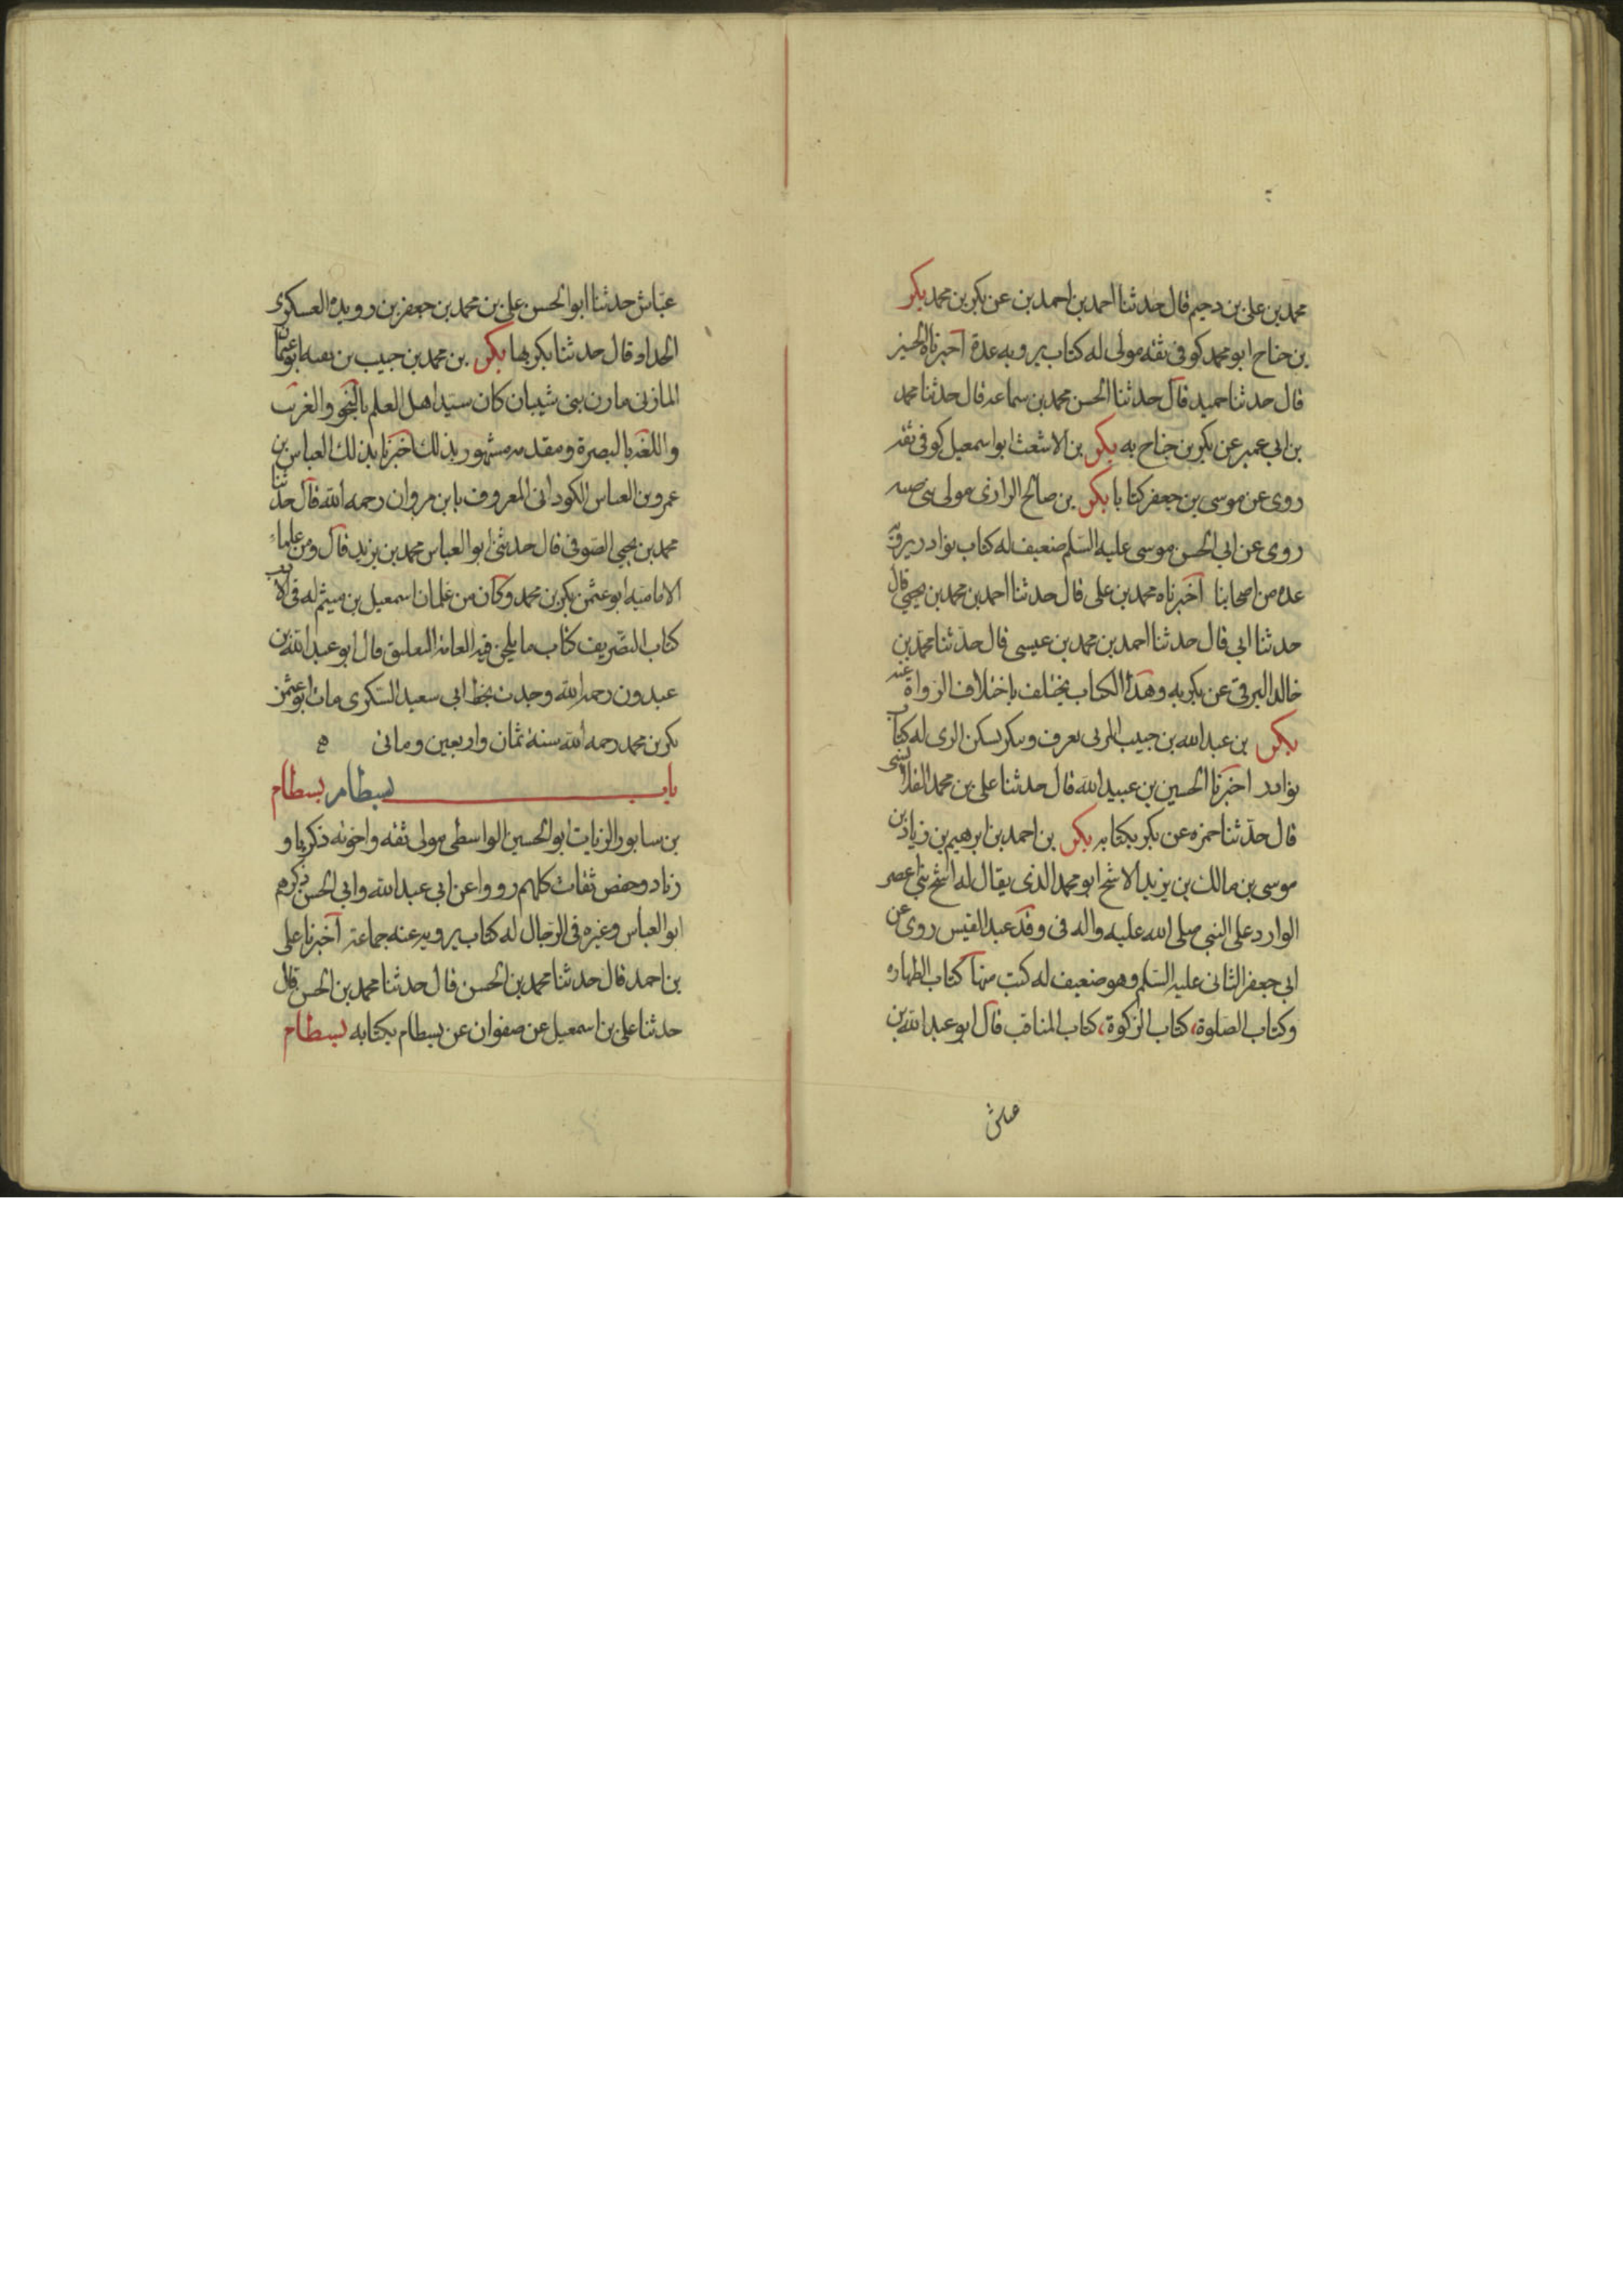 محمد بن علی بن دحیم قال حدثنا احمد بن احمد بن عن بکر بن محمد بکر
بن جناح ابو محمد کوفی ثقه مولی له کتاب یرویه عدة اخبرنا الحسین
قال حدثنا حمید قال حدثنا الحسن محمد بن سماعه قال حدثنا محمد
بن ابی عمیر عن بکر بن جناح به بکر بن الاشعث ابو اسمعیل کوفی ثقه
روی عن موسی بن جعفر کتابا بکر بن صالح الرازی مولی بنی ضبه
روی عن ابی الحسن موسی علیه السلم ضعیف له کتاب نوادر یرویه
عده من اصحابنا اخبرناه محمد بن علی قال حدثنا احمد بن محمد بن یحیی قال
حدثنا ابی قال حدثنا احمد بن محمد بن عیسی قال حدثنا محمد بن
خالد البرقی عن بکر به وهذا الکتاب یختلف باختلاف الرواة عنه
بکر بن عبد الله بن حبیب المزنی یعرف وینکر یسکن الری له کتاب
نوادر اخبرنا الحسین بن عبید الله قال حدثنا علی بن محمد القلانسی
قال حدثنا حمزه عن بکر بکتابه بکر بن احمد بن ابرهیم بن زیاد بن
موسی بن مالک بن یزید الاشج ابو محمد الذی یقال له اشج بنی عصر
الوارد علی النبی صلی الله علیه واله فی وفد عبد القیس روی عن
ابی جعفر الثانی علیه السلم وهو ضعیف له کتب منها کتاب الطهاره
وکتاب الصلوة، کتاب الزکوة، کتاب المناقب قال ابو عبد الله بن
عیاش
عیاش حدثنا ابو الحسن علی بن محمد بن جعفر بن رویده العسکری
الحداد قال حدثنا بکر بها بکر بن محمد بن حبیب بن بقیه ابو عثمان
المازنی مازن بنی شیبان کان سید اهل العلم بالنحو والغریب
واللغة بالبصرة ومقدمه مشهور بذلک اخبرنا بذلک العباس بن
عمر بن العباس الکلوذانی المعروف بابن مروان رحمه الله قال حدثنا
محمد بن یحیی الصوفی قال حدثنی ابو العباس محمد بن یزید قال ومن علماء
الامامیه ابو عثمن بکر بن محمد وکان من غلمان اسمعیل بن میثم له فی الادب
کتاب التصریف کتاب ما یلحن فیه العامه التعلیق قال ابو عبد الله بن
عبدون رحمه الله وجدت بخط ابی سعید السکری مات ابو عثمن
بکر بن محمد رحمه الله سنة ثمان واربعین ومائتی ه
باب بسطام بسطام
بن سابور الزیات ابو الحسین الواسطی مولی ثقه واخوته زکریا و
زیاد وحفص ثقات کلهم رووا عن ابی عبد الله وابی الحسن ذکرهم
ابو العباس وغیره فی الرجال له کتاب یرویه عنه جماعة اخبرنا علی
بن احمد قال حدثنا محمد بن الحسن قال حدثنا محمد بن الحسن قال
حدثنا علی بن اسمعیل عن صفوان عن بسطام بکتابه بسطام